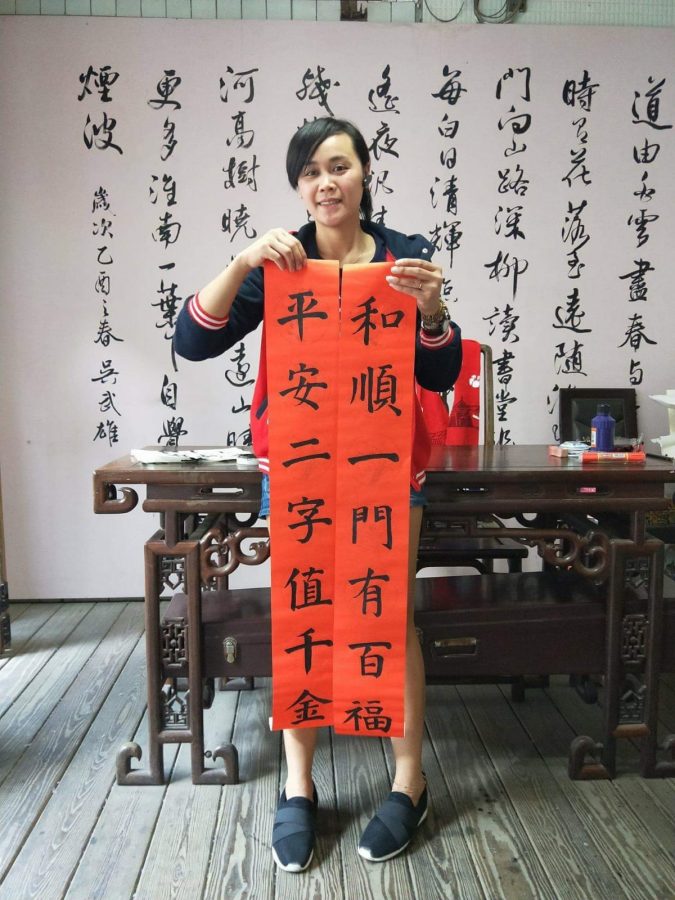 和順一門有百福
平安二字值千金
道由白雲盡春与
時有花落至遠隨
門向山路深柳讀書堂
每白日清輝
遙夜汎
殘
河高樹曉遠山晴
更多淮南一葉自覺
煙波
歲次乙酉之春 吳武雄